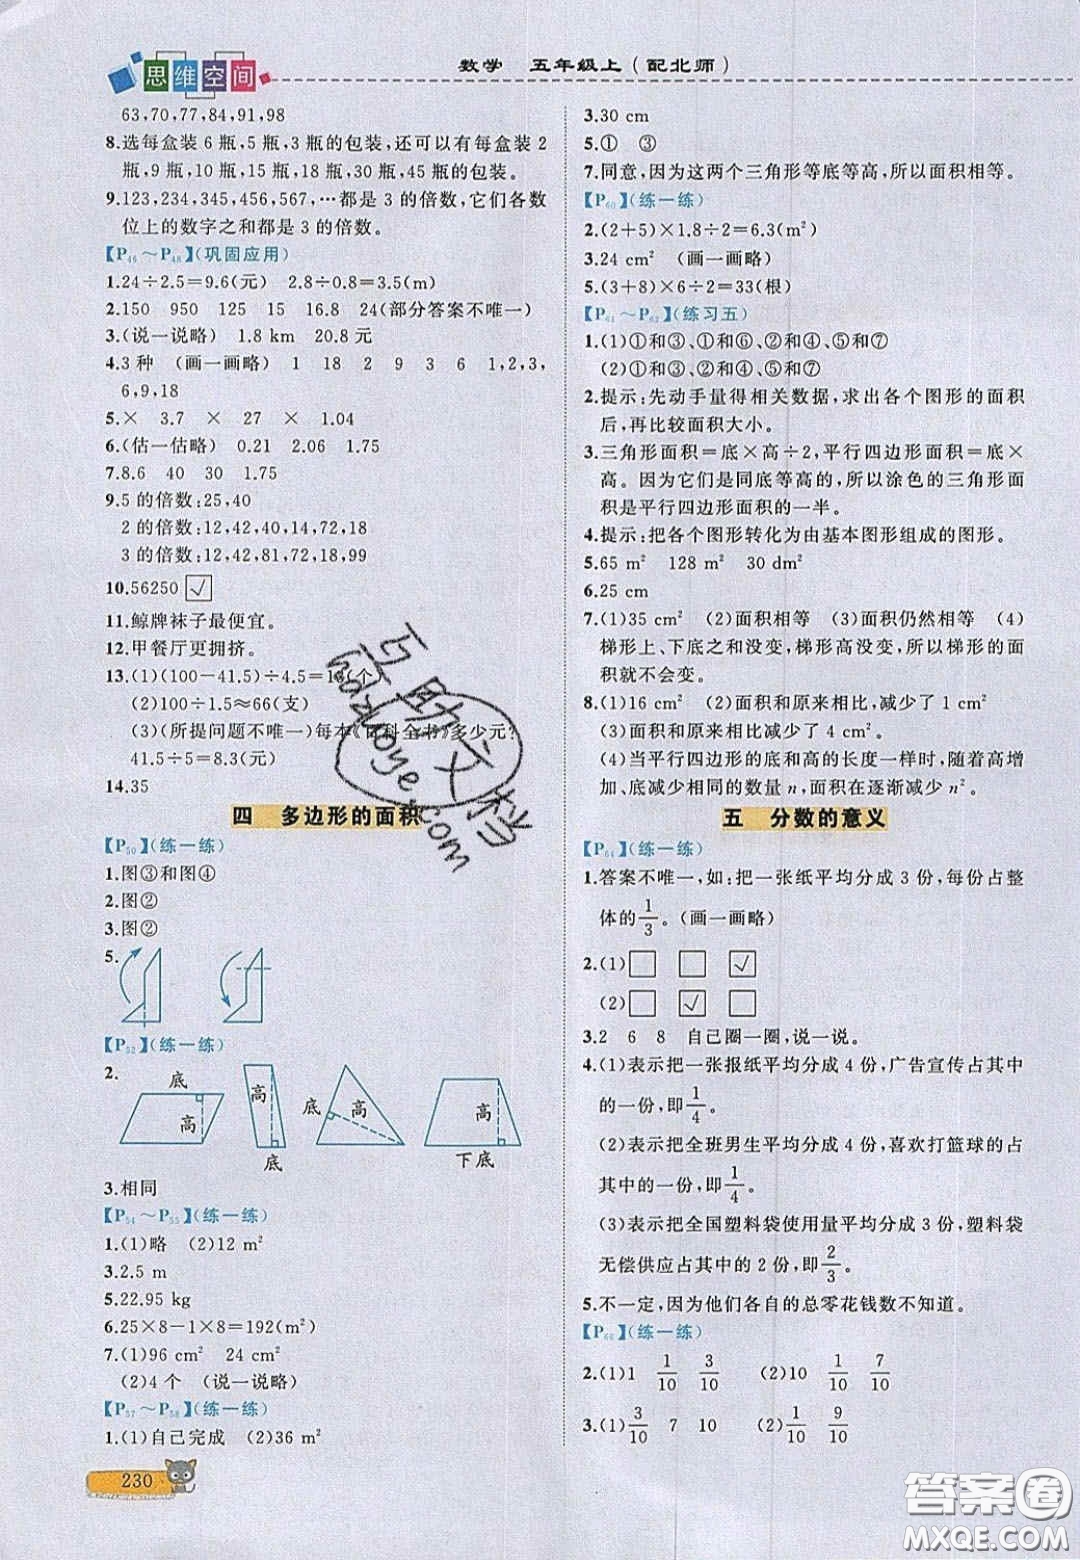 思维空间
数学 五年级上(配北师)
63,70,77,84,91,98
8.选每盒装 6 瓶,5 瓶,3 瓶的包装,还可以有每盒装 2
瓶,9 瓶,10 瓶,15 瓶,18 瓶,30 瓶,45 瓶的包装。
9.123,234,345,456,567,…都是 3 的倍数,它们各数
位上的数字之和都是 3 的倍数。
【P46～P48】(巩固应用)
1.24÷2.5=9.6(元) 2.8÷0.8=3.5(m)
2.150 950 125 15 16.8 24(部分答案不唯一)
3.(说一说略) 1.8 km 20.8 元
4.3 种 (画一画略) 1 18 2 9 3 6 1,2,3,
6,9,18
5.× 3.7 × 27 × 1.04
6.(估一估略) 0.21 2.06 1.75
7.8.6 40 30 1.75
9.5 的倍数:25,40
2 的倍数:12,42,40,14,72,18
3 的倍数:12,42,81,72,18,99
10.56250 √
11.鲸牌袜子最便宜。
12.甲餐厅更拥挤。
13.(1)(100-41.5)÷4.5=13(个)
(2)100÷1.5≈66(支)
(3)(所提问题不唯一)每本《百科全书》多少元?
41.5÷5=8.3(元)
14.35
四 多边形的面积
【P50】(练一练)
1.图③和图④
2.图②
3.图②
5.
【P52】(练一练)
2.
底 高 高 底 底 高 高 下底
3.相同
【P54～P55】(练一练)
1.(1)略 (2)12 m²
3.2.5 m
5.22.95 kg
6.25×8-1×8=192(m²)
7.(1)96 cm² 24 cm²
(2)4 个 (说一说略)
【P57～P58】(练一练)
1.(1)自己完成 (2)36 m²
230
3.30 cm
5.① ③
7.同意,因为这两个三角形等底等高,所以面积相等。
【P60】(练一练)
2.(2+5)×1.8÷2=6.3(m²)
3.24 cm² (画一画略)
5.(3+8)×6÷2=33(根)
【P61～P62】(练习五)
1.(1)①和③、①和⑥、②和④、⑤和⑦
(2)①和③、②和④、⑤和⑦
2.提示:先动手量得相关数据,求出各个图形的面积
后,再比较面积大小。
3.三角形面积=底×高÷2,平行四边形面积=底×
高。因为它们是同底等高的,所以涂色的三角形面
积是平行四边形面积的一半。
4.提示:把各个图形转化为由基本图形组成的图形。
5.65 m² 128 m² 30 dm²
6.25 cm
7.(1)35 cm² (2)面积相等 (3)面积仍然相等 (4)
梯形上、下底之和没变,梯形高没变,所以梯形的面
积就不会变。
8.(1)16 cm² (2)面积和原来相比,减少了 1 cm²
(3)面积和原来相比减少了 4 cm²。
(4)当平行四边形的底和高的长度一样时,随着高增
加,底减少相同的数量 n,面积在逐渐减少 n²。
五 分数的意义
【P64】(练一练)
1.答案不唯一,如:把一张纸平均分成 3 份,每份占整
体的1/3。(画一画略)
2.(1)□ □ √
(2)□ √ □
3.2 6 8 自己圈一圈,说一说。
4.(1)表示把一张报纸平均分成 4 份,广告宣传占其中
的一份,即1/4。
(2)表示把全班男生平均分成 4 份,喜欢打篮球的占
其中的一份,即1/4。
(3)表示把全国塑料袋使用量平均分成 3 份,塑料袋
无偿供应占其中的 2 份,即2/3。
5.不一定,因为他们各自的总零花钱数不知道。
【P66】(练一练)
2.(1)1 1/10 3/10 (2)10 1/10 7/10
3.(1)3/10 7 10 (2)1/10 9/10
互助文档
hdzuoye.com
答案圈
MXQE.COM